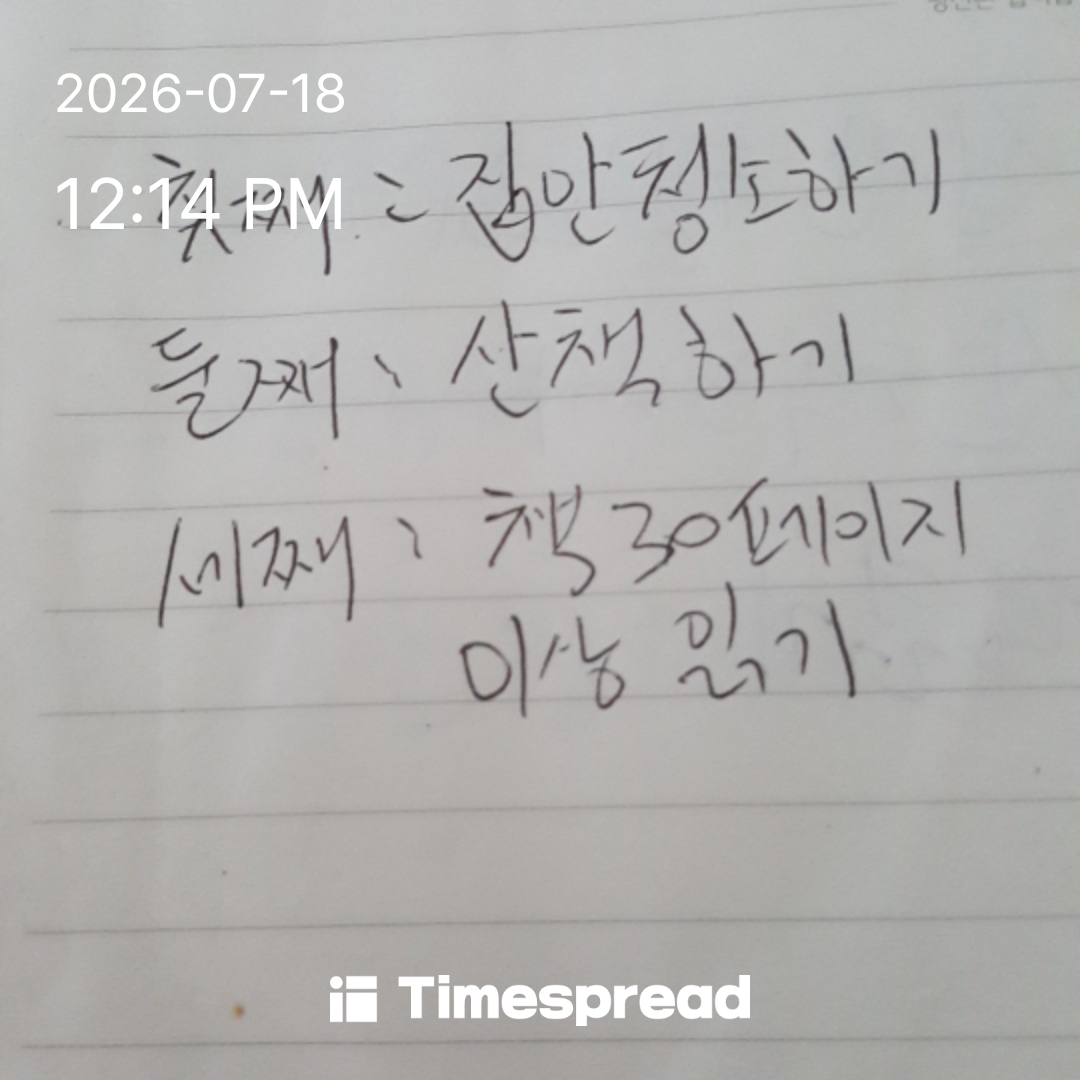 2026-07-18
12:14 PM
첫째 : 집안청소하기
둘째 : 산책하기
세째 : 책 30페이지
이상 읽기
Timespread